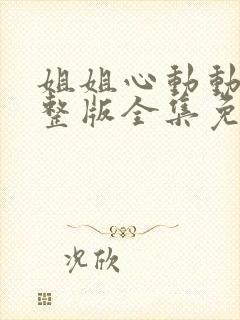 姐姐心動動
整版全集免
况欣